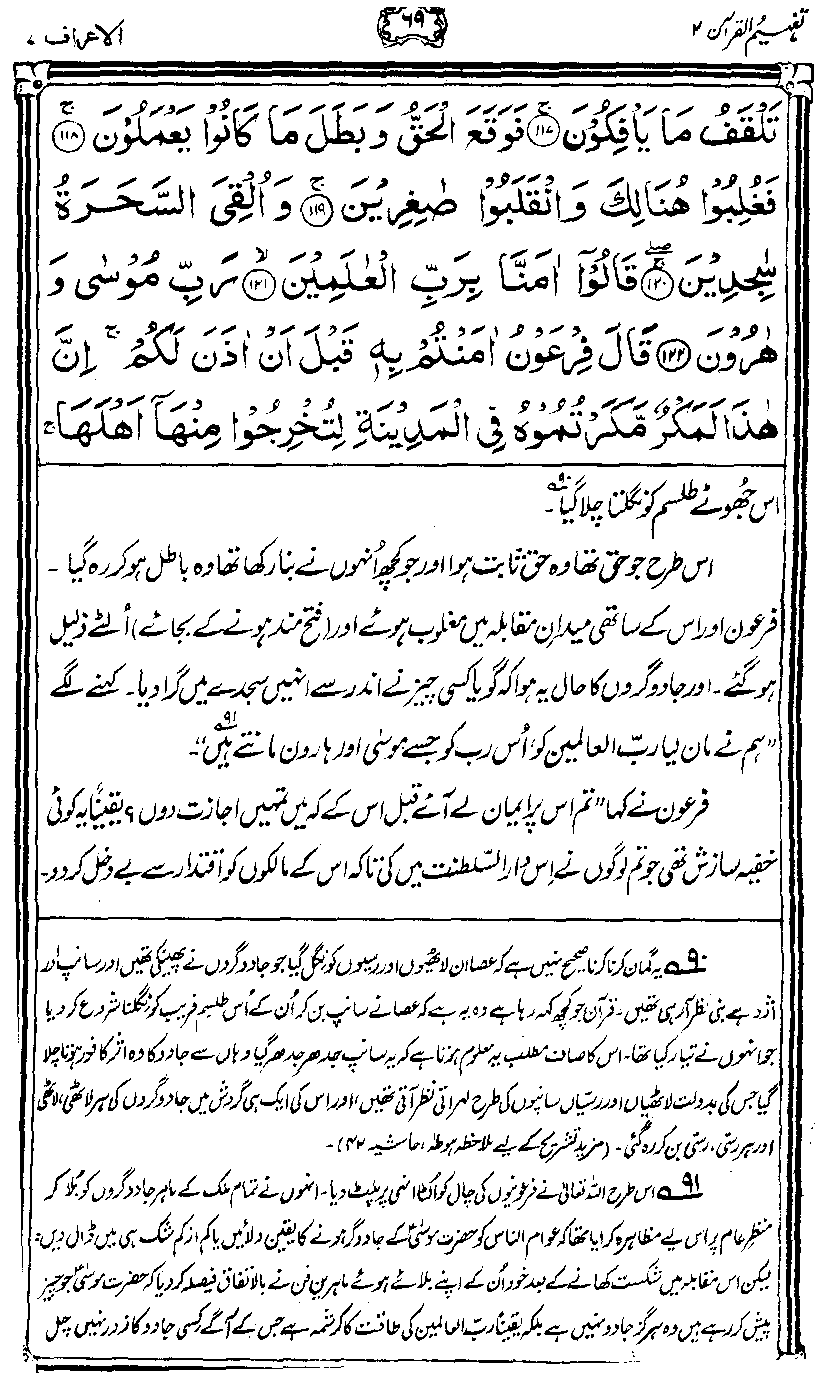 تفہیم القرآن ۲
۶۹
الاعراف ۷
تَلْقَفُ مَا يَاْفِكُوْنَ ﴿۱۱۷﴾ۚ فَوَقَعَ الْحَقُّ وَبَطَلَ مَا كَانُوْا يَعْمَلُوْنَ ﴿۱۱۸﴾ۚ
فَغُلِبُوْا هُنَالِكَ وَانْقَلَبُوْا صٰغِرِيْنَ ﴿۱۱۹﴾ۚ وَاُلْقِيَ السَّحَرَةُ
سٰجِدِيْنَ ﴿۱۲۰﴾ۖ قَالُوْٓا اٰمَنَّا بِرَبِّ الْعٰلَمِيْنَ ﴿۱۲۱﴾ۙ رَبِّ مُوْسٰى وَ
هٰرُوْنَ ﴿۱۲۲﴾ قَالَ فِرْعَوْنُ اٰمَنْتُمْ بِهٖ قَبْلَ اَنْ اٰذَنَ لَكُمْ ۚ اِنَّ
هٰذَا لَمَكْرٌ مَّكَرْتُمُوْهُ فِى الْمَدِيْنَةِ لِتُخْرِجُوْا مِنْهَآ اَهْلَهَا ۚ
اس جھُوٹے طلسم کو نگلتا چلا گیا۹۰۔
اس طرح جو حق تھا وہ حق ثابت ہوا اور جو کچھ اُنہوں نے بنا رکھا تھا وہ باطل ہو کر رہ گیا۔
فرعون اور اس کے ساتھی میدانِ مقابلہ میں مغلوب ہوئے اور (فتح مند ہونے کے بجائے) اُلٹے ذلیل
ہو گئے۔ اور جادوگروں کا حال یہ ہوا کہ گویا کسی چیز نے اندر سے انہیں سجدے میں گرا دیا۔ کہنے لگے
”ہم نے مان لیا ربّ العالمین کو، اُس رب کو جسے موسٰی اور ہارون مانتے ہیں۹۱“۔
فرعون نے کہا ”تم اس پر ایمان لے آئے قبل اس کے کہ میں تمہیں اجازت دوں؟ یقیناً یہ کوئی
خفیہ سازش تھی جو تم لوگوں نے اِس دارالسّلطنت میں کی تاکہ اس کے مالکوں کو اقتدار سے بے دخل کر دو۔
۹۰ یہ گمان کرنا کرنا صحیح نہیں ہے کہ عصا ان لاٹھیوں اور رسیوں کو نگل گیا جو جادوگروں نے پھینکی تھیں اور سانپ اور
اژدہے بنی نظر آرہی تھیں۔ قرآن جو کچھ کہہ رہا ہے وہ یہ ہے کہ عصا نے سانپ بن کر اُن کے اُس طلسمِ فریب کو نگلنا شروع کر دیا
جو انہوں نے تیار کیا تھا۔ اس کا صاف مطلب یہ معلوم ہوتا ہے کہ یہ سانپ جدھر جدھر گیا وہاں سے جادو کا وہ اثر کافور ہوتا چلا
گیا جس کی بدولت لاٹھیاں اور رسّیاں سانپوں کی طرح لہراتی نظر آتی تھیں، اور اس کی ایک ہی گردش میں جادوگروں کی ہر لاٹھی، لاٹھی
اور ہر رسّی، رسّی بن کر رہ گئی۔ (مزید تشریح کے لیے ملاحظہ ہو طٰہٰ، حاشیہ ۴۲)۔
۹۱ اس طرح اللہ تعالیٰ نے فرعونیوں کی چال کو اُلٹا انہی پر پلٹ دیا۔ انہوں نے تمام ملک کے ماہر جادوگروں کو بُلا کر
منظرِ عام پر اس لیے مظاہرہ کرایا تھا کہ عوام الناس کو حضرت موسیٰؑ کے جادوگر ہونے کا یقین دلائیں یا کم از کم شک ہی میں ڈال دیں۔
لیکن اس مقابلہ میں شکست کھانے کے بعد خود اُن کے اپنے بلائے ہوئے ماہرینِ فن نے بالاتفاق فیصلہ کر دیا کہ حضرت موسیٰؑ جو چیز
پیش کر رہے ہیں وہ ہرگز جادو نہیں ہے بلکہ یقیناً ربّ العالمین کی طاقت کا کرشمہ ہے جس کے آگے کسی جادو کا زور نہیں چل